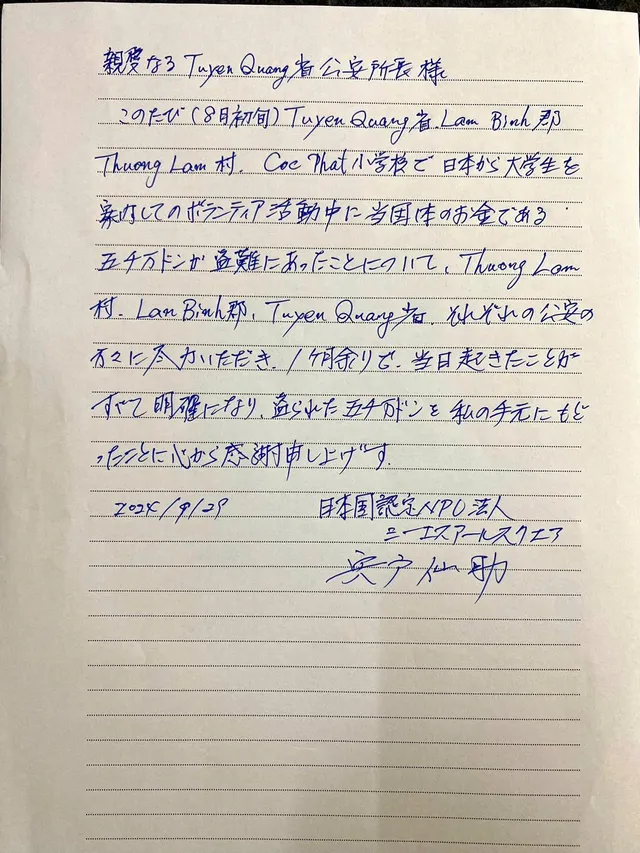 親愛なる Tuyen Quang省公安所長様
このたび(8月初旬)Tuyen Quang省.Lam Binh郡
Thuong Lam村. Coc Phat小学校で日本から大学生を
案内してのボランティア活動中に当団体のお金である
五千万ドンが盗難にあったことについて、Thuong Lam
村.Lam Binh郡、Tuyen Quang省.それぞれの公安の
方々に尽力いただき.1ヶ月余りで.当日起きたことが
すべて明確になり、盗られた五千万ドンを私の手元にもど
ったことに心から感謝申し上げます.
2024/9/29 日本国認定NPO法人
シーエスアールスクエア
宍戸仙助